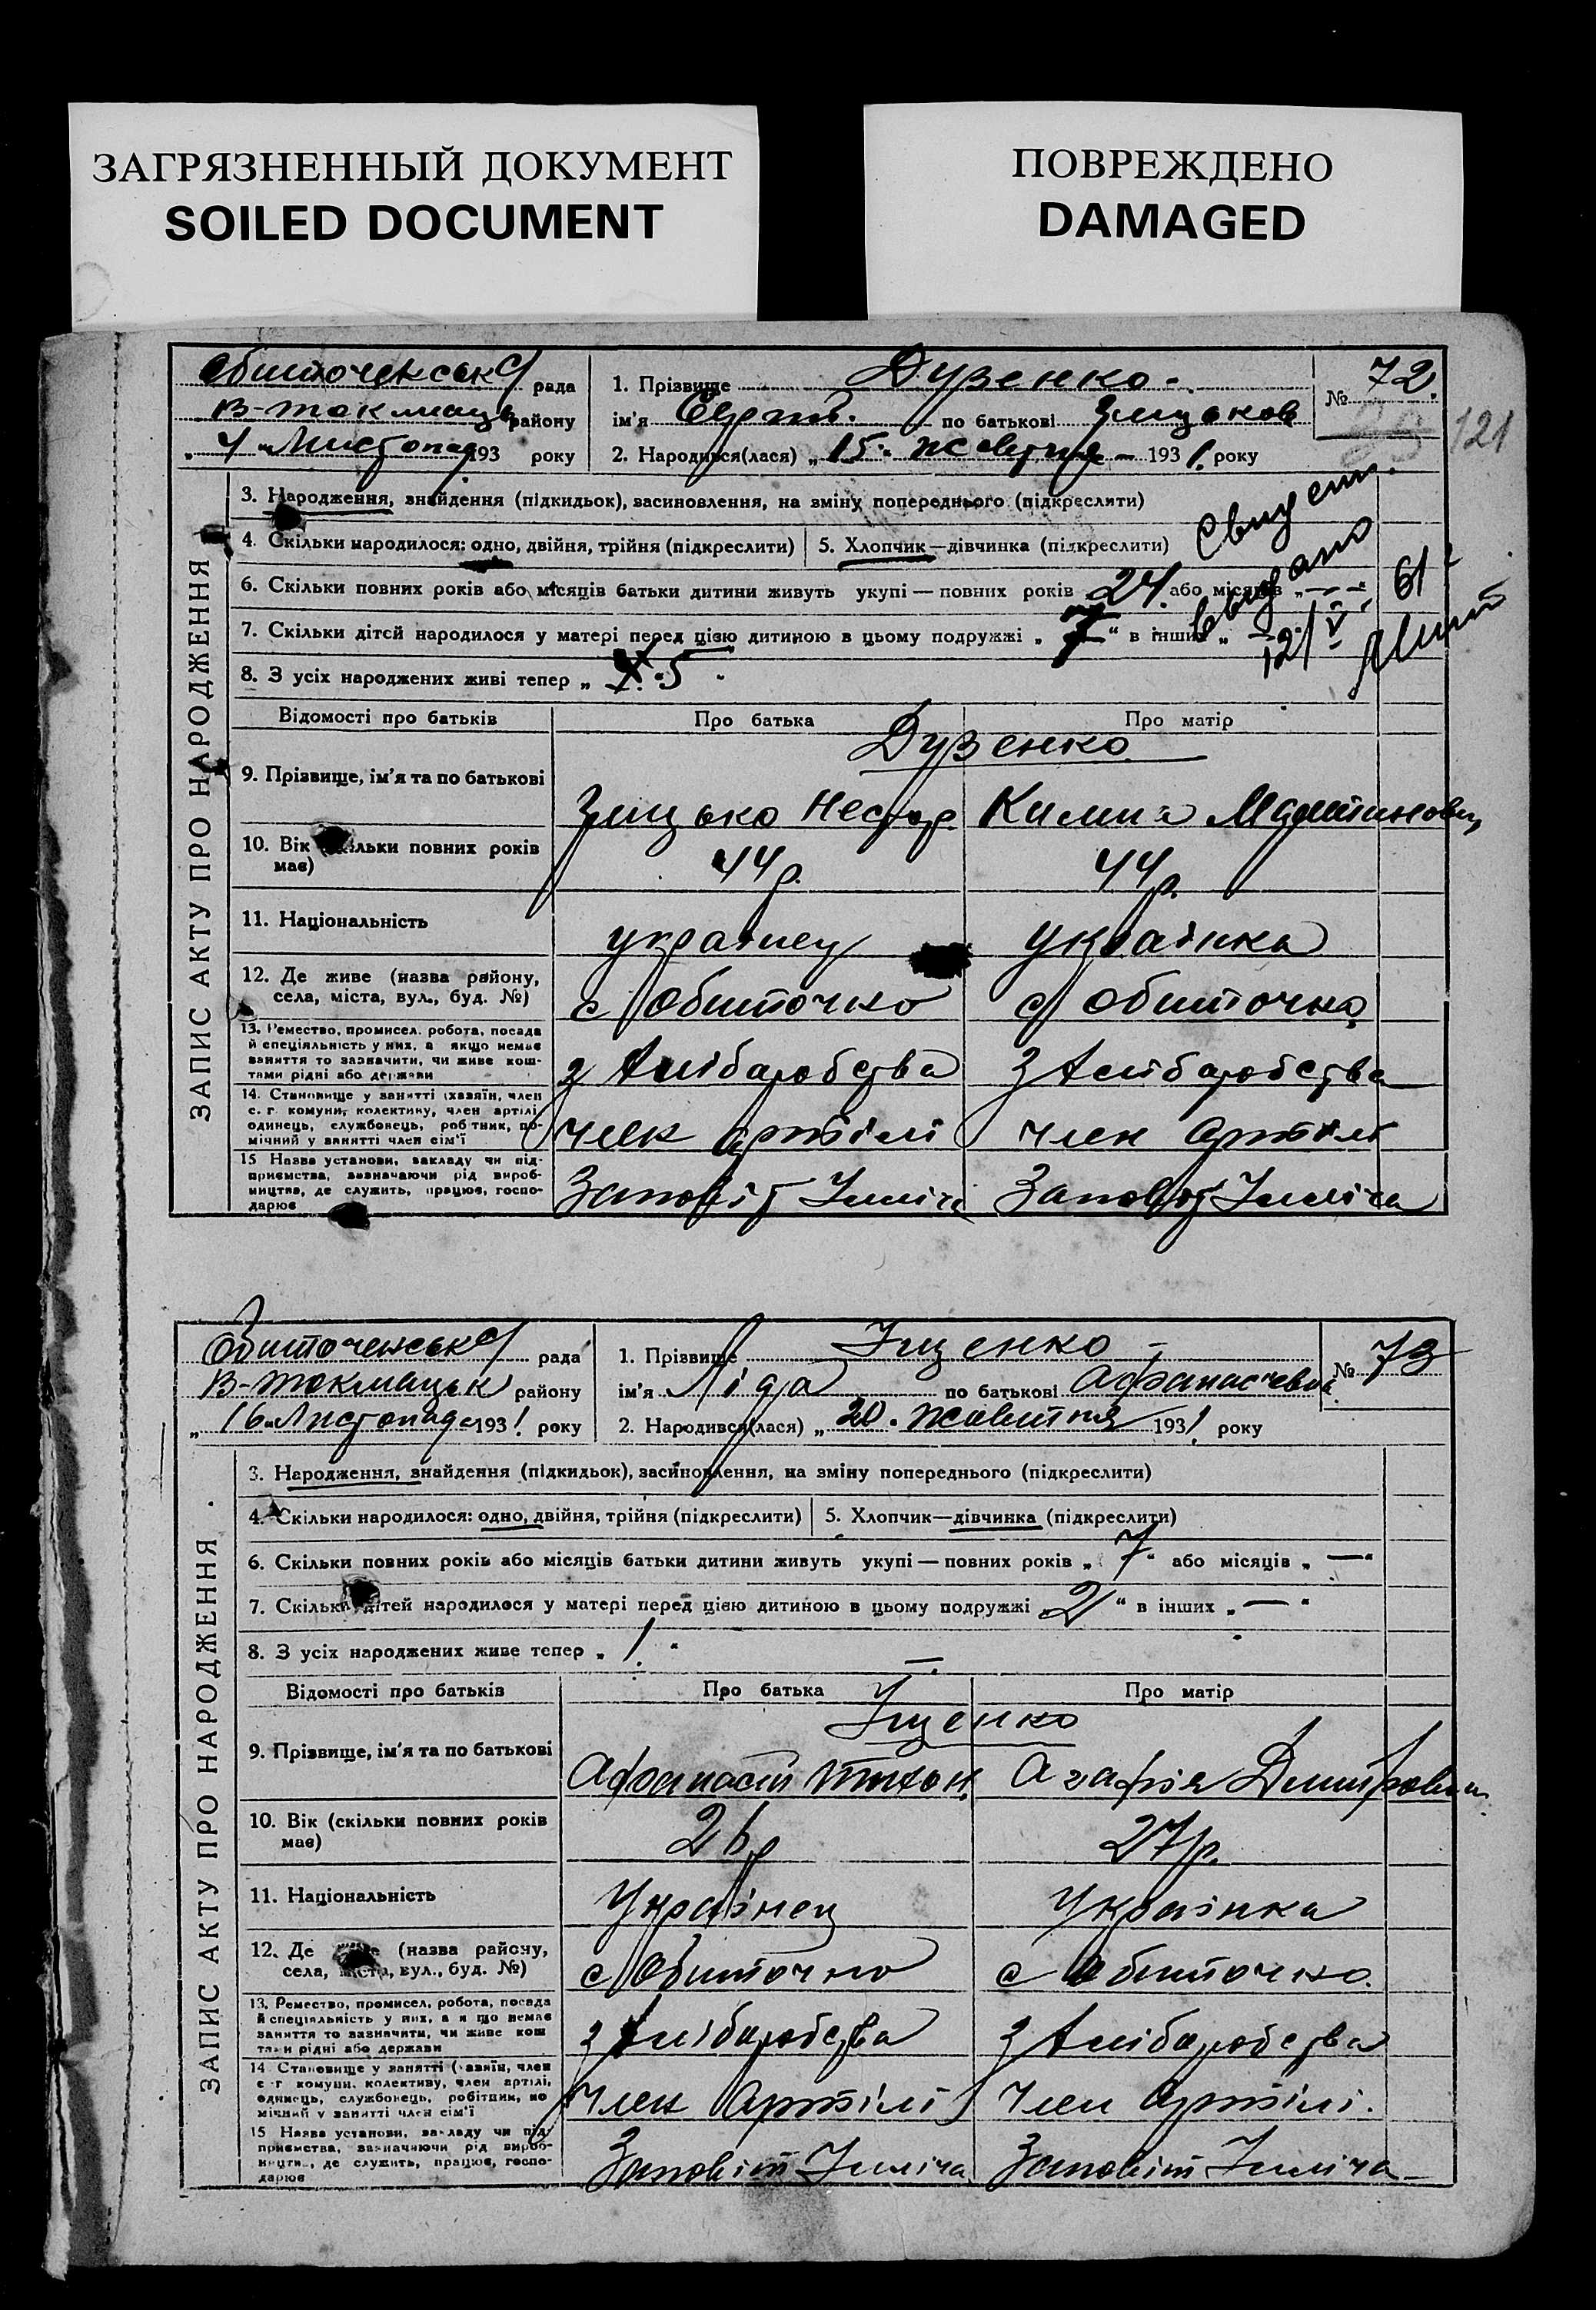 ЗАГРЯЗНЕННЫЙ ДОКУМЕНТ
SOILED DOCUMENT
ПОВРЕЖДЕНО
DAMAGED
рада
В-Токмацьк району
4 "Листопад 193 року
1. Прізвище Дузенко -
ім'я по батькові Грицьков
2. Народився(лася) „ 15 " жовтня - 1931. року
№ 72.
121
ЗАПИС АКТУ ПРО НАРОДЖЕННЯ
3. Народження, знайдення (підкидьок), засиновлення, на зміну попереднього (підкреслити)
4. Скільки народилося: одно, двійня, трійня (підкреслити)
5. Хлопчик—дівчинка (підкреслити)
6. Скільки повних років або місяців батьки дитини живуть укупі — повних років 24. або місяців „ — "
7. Скільки дітей народилося у матері перед цією дитиною в цьому подружжі „ 7 " в інших „ —
8. З усіх народжених живі тепер „ 5
Свидет.
выдано
12/V 61
Відомості про батьків
Про батька
Про матір
Дузенко
9. Прізвище, ім'я та по батькові
Грицько Нестор. Килина Мартинович
10. Вік (скільки повних років має)
44р. 44р.
11. Національність
українец українка
12. Де живе (назва району, села, міста, вул., буд. №)
с Обиточно с Обиточно
13. Ремество, промисел, робота, посада й спеціяльність у них, а якщо немає заняття то зазначити, чи живе коштами рідні або держави
з Хліборобства з Хліборобства
14. Становище у занятті (хазяїн, член с. г. комуни, колективу, член артілі, одинець, службовець, робітник, помічний у занятті член сім'ї
член артілі член артілі
15 Назва установи, закладу чи підприємства, зазначаючи рід виробництва, де служить, працює, господарює
Заповіт Ілліча Заповіт Ілліча
Обиточенська рада
В-Токмацьк району
„ 16 "Листопада 1931 року
1. Прізвище Іщенко -
ім'я Ліда по батькові Афанасієвна
2. Народився(лася) „ 20 " жовтня 1931 року
№ 73
ЗАПИС АКТУ ПРО НАРОДЖЕННЯ
3. Народження, знайдення (підкидьок), засиновлення, на зміну попереднього (підкреслити)
4. Скільки народилося: одно, двійня, трійня (підкреслити)
5. Хлопчик—дівчинка (підкреслити)
6. Скільки повних років або місяців батьки дитини живуть укупі — повних років „ 7 " або місяців „ — "
7. Скільки дітей народилося у матері перед цією дитиною в цьому подружжі „ 2 " в інших „ — "
8. З усіх народжених живе тепер „ 1. "
Відомості про батьків
Про батька
Про матір
Іщенко
9. Прізвище, ім'я та по батькові
Афанасій Тихон. Агафія Дмитровн
10. Вік (скільки повних років має)
26р 27р.
11. Національність
Українец Українка
12. Де (назва району, села, міста, вул., буд. №)
с Обиточно с Обиточно.
13. Ремество, промисел, робота, посада й спеціяльність у них, а якщо немає заняття то зазначити, чи живе коштами рідні або держави
з Хліборобства з Хліборобства
14 Становище у занятті (хазяїн, член с-г комуни, колективу, член артілі, одинець, службовець, робітник, помічний у занятті член сім'ї
член Артілі член Артілі.
15 Назва установи, закладу чи підприємства, зазначаючи рід виробництва, де служить, працює, господарює
Заповіт Ілліча Заповіт Ілліча